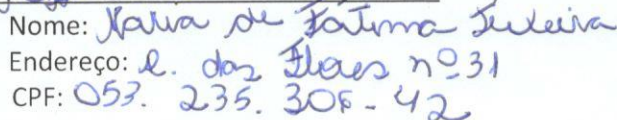 Nome: Maria de Fátima Teixeira
Endereço: R. das Flores nº 31
CPF: 053. 235. 306-42